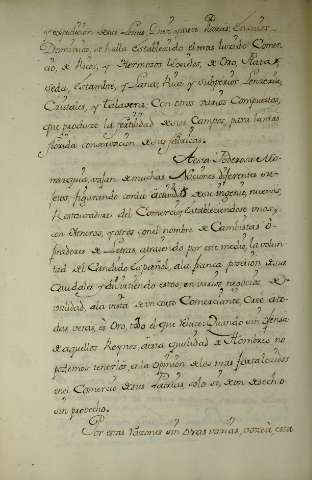 y expedicion de sus
Dominios, se halla establecido el mas lucido Comer-
cio, de Ricos, y Hermosos tegidos, de Oro, Plata,
seda, estambre, y Lana, Rica y subperior Lenzeria,
Cristales, y Talavera, Con otros varios Compuestos,
que produze la fertilidad de sus Campos, para la mas
florida conservacion de sus fabricas.
A esta Poderosa Mo-
narquia, vajan de muchas Naciones diferentes su-
jetos, figurando con la actividad de su ingenio, nuevos
Restauradores del Comercio, estableciendose unos,
con Generos, y otros con el nombre de Cambistas o
firadores de Letras, atrayendo por este medio, la volun-
tad del Candido Español, a la franca posecion de sus
Caudales, y divirtiendo estos, en varios negocios de
utilidad, a la vista de un custo Comerciante, Cree a to-
das veras, es Oro, todo el que Quando sin ofensa
de aquellos Reynos, a esta qualidad de Hombres no
podemos tenerlos, en la opinion de los mas fortalecidos
en el Comercio de sus Patrias, solo si, de un desecho
sin probecho.
Por estas razones sin otras varias, nozca, esta